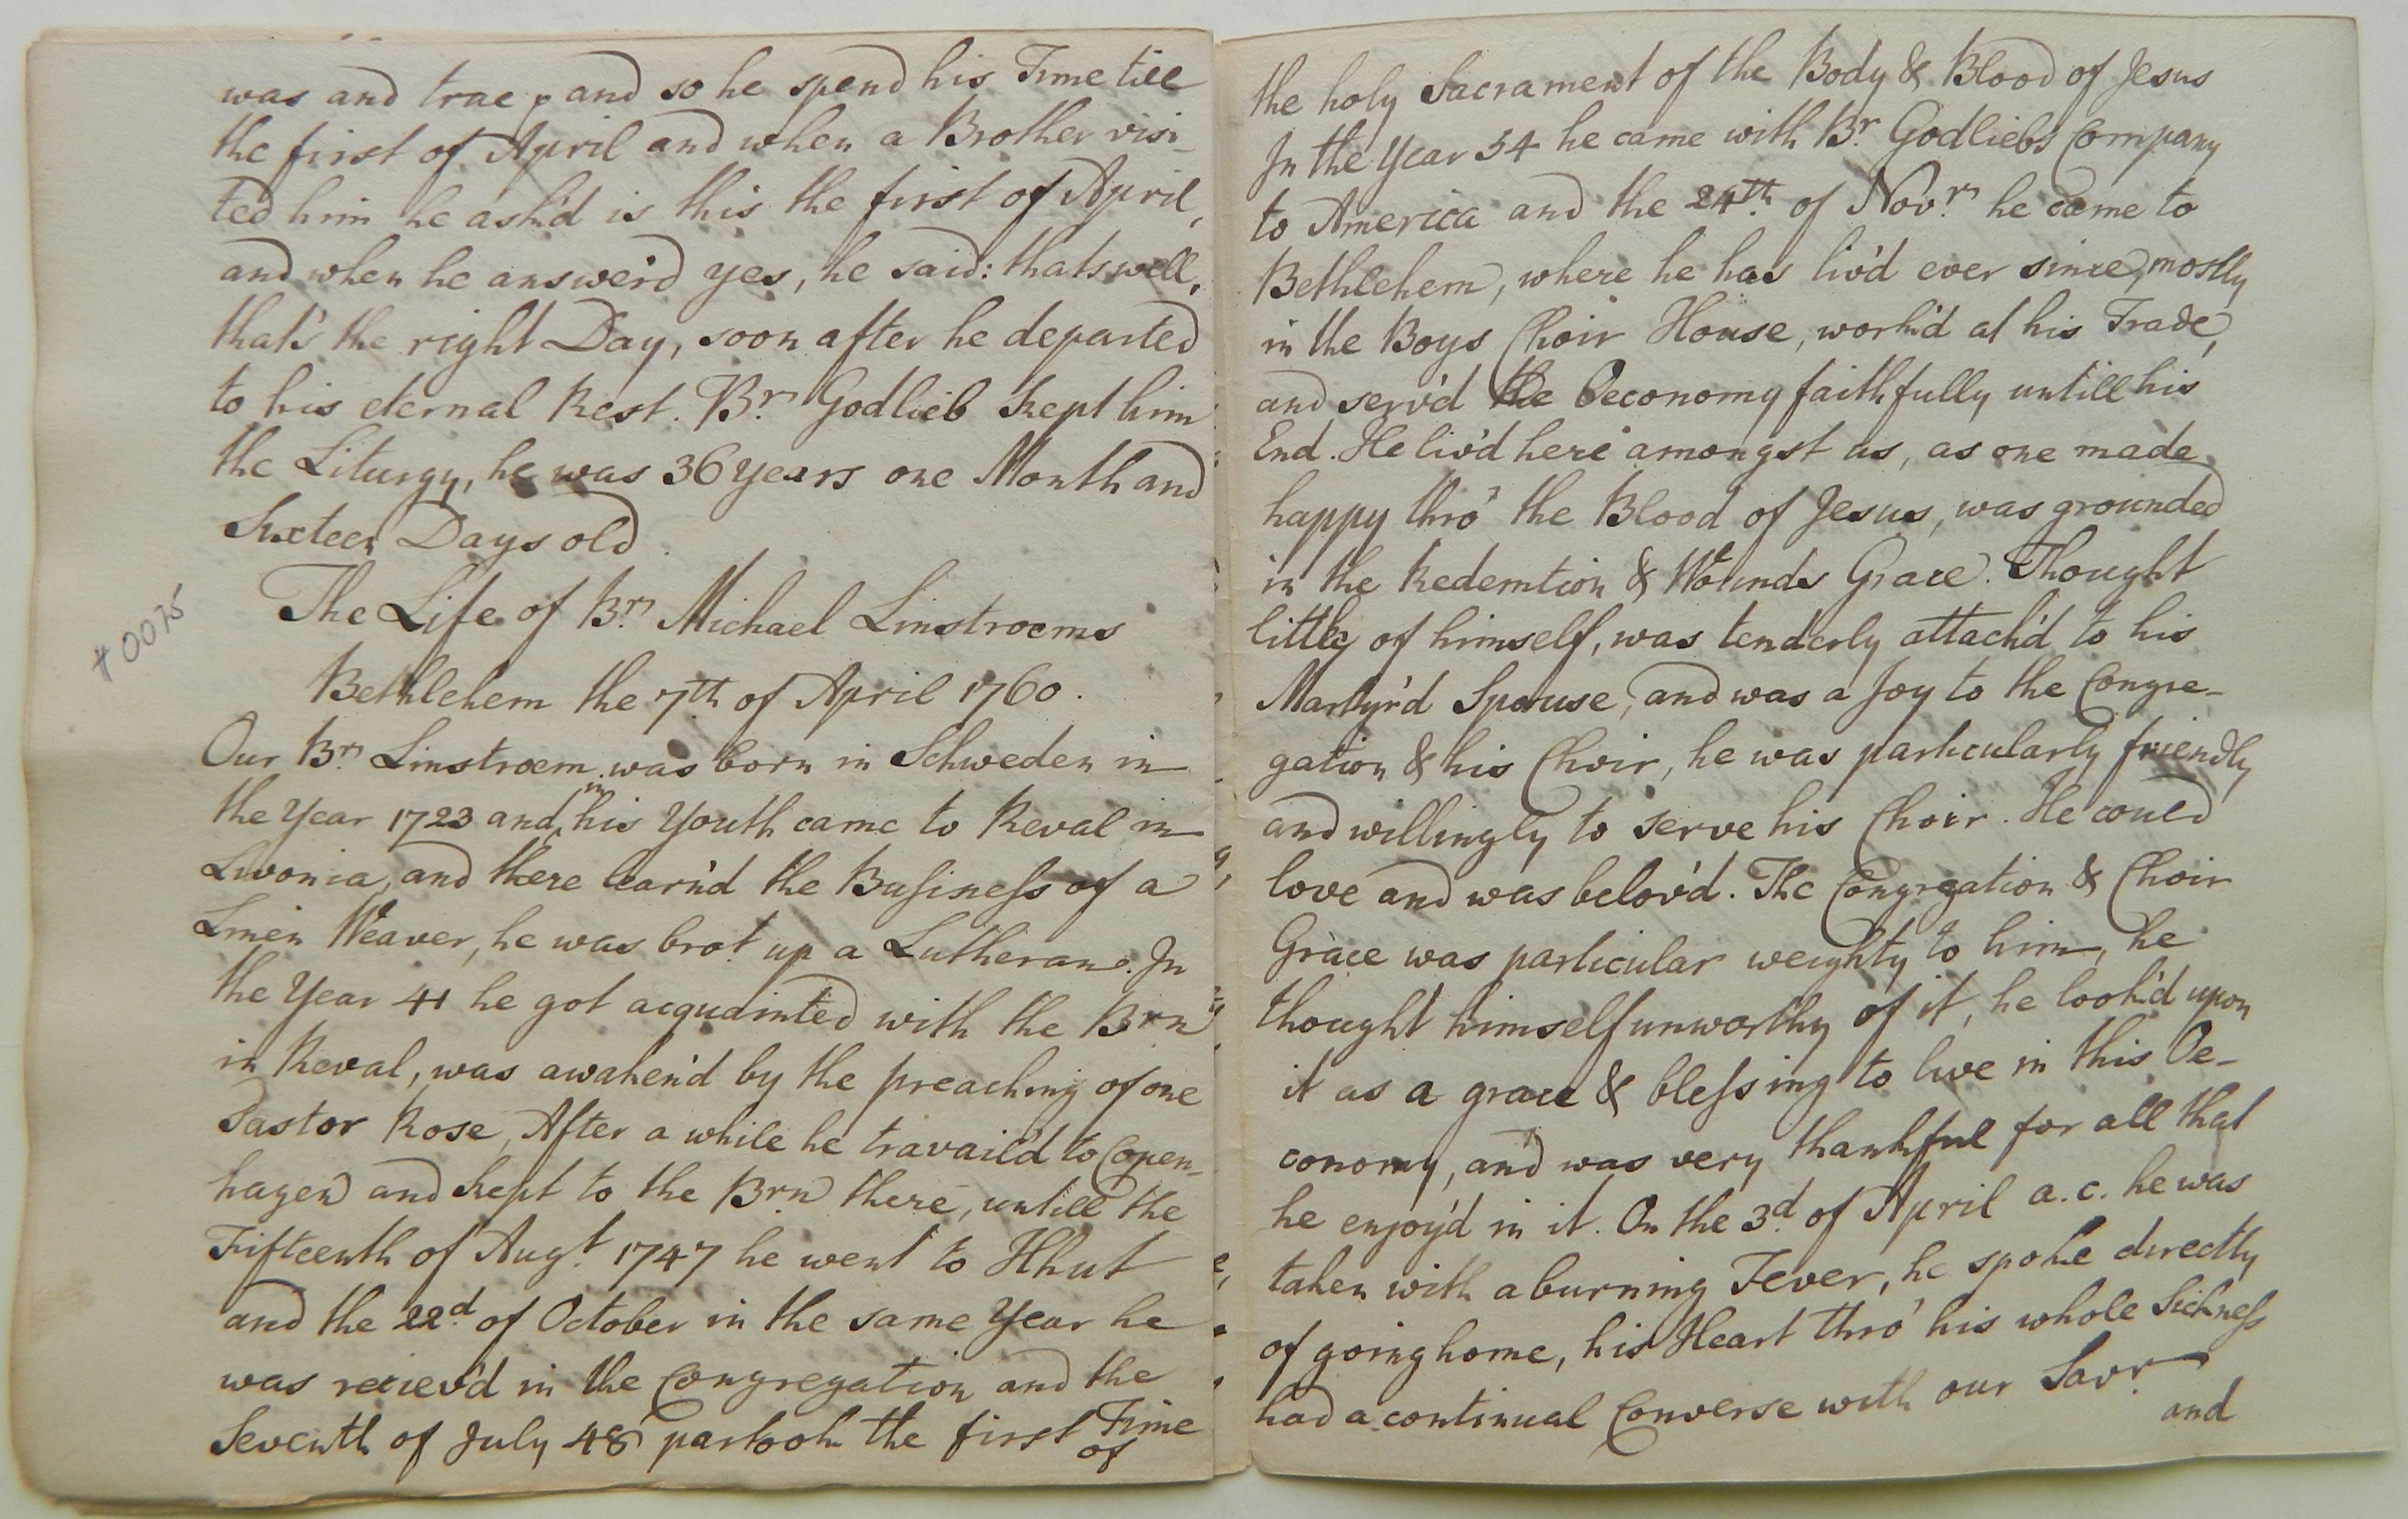 was and trae p and so he spend his Time till
the first of April and when a Brother visi-
ted him he ask'd is this the first of April,
and when he answer'd yes, he said: thats well,
that's the right Day, soon after he departed
to his eternal Rest. Br. Godlieb kept him
the Liturgy, he was 36 years one Month and
Sixteen Days old.
The Life of Br. Michael Linstroems
Bethlehem the 7th of April 1760.
Our Br. Linstroem was born in Schweden in
the Year 1723 and in his Youth came to Reval in
Livonia, and there learn'd the Business of a
Linen Weaver, he was brot. up a Lutheran. In
the Year 41 he got acquainted with the Brn
in Reval, was awaken'd by the preaching of one
Pastor Rose, After a while he travail'd to Copen-
hagen and kept to the Brn there, untill the
Fifteenth of Augt. 1747 he went to Hhut
and the 22d. of October in the same Year he
was reciev'd in the Congregation and the
Seventh of July 48 partook the first Time
of
the holy Sacrament of the Body & Blood of Jesus
In the Year 54 he came with Br. Godliebs Company
to America and the 24th. of Novr. he came to
Bethlehem, where he has liv'd ever since, mostly
in the Boys Choir House, work'd at his Trade,
and serv'd the Oeconomy faithfully untill his
End. He liv'd here amongst us, as one made
happy thro' the Blood of Jesus, was grounded
in the Redemtion & Wounds Grace. Thought
little of himself, was tenderly attach'd to his
Martyr'd Spouse, and was a Joy to the Congre-
gation & his Choir, he was particularly friendly
and willingly to serve his Choir. He coued
love and was belov'd. The Congregation & Choir
Grace was particular weighty to him, he
thought himself unworthy of it, he look'd upon
it as a grace & blessing to live in this Oe-
conomy, and was very thankful for all that
he enjoy'd in it. On the 3d. of April a.c. he was
taken with a burning Fever, he spoke directly
of going home, his Heart thro' his whole Sickness
had a continual Converse with our Savr.
and
+0075